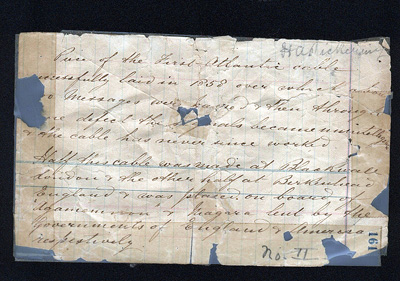 Piece of the First Atlantic cable
successfully laid in 1858 over which
messages were passed & then through
defect the signals became
& the cable has never since worked
Half this cable was made at
London & the other half at Birkenhead
England & was placed on board of
Agamemnon & Niagara lent by the
governments of England & America
respectively
No. 11
161